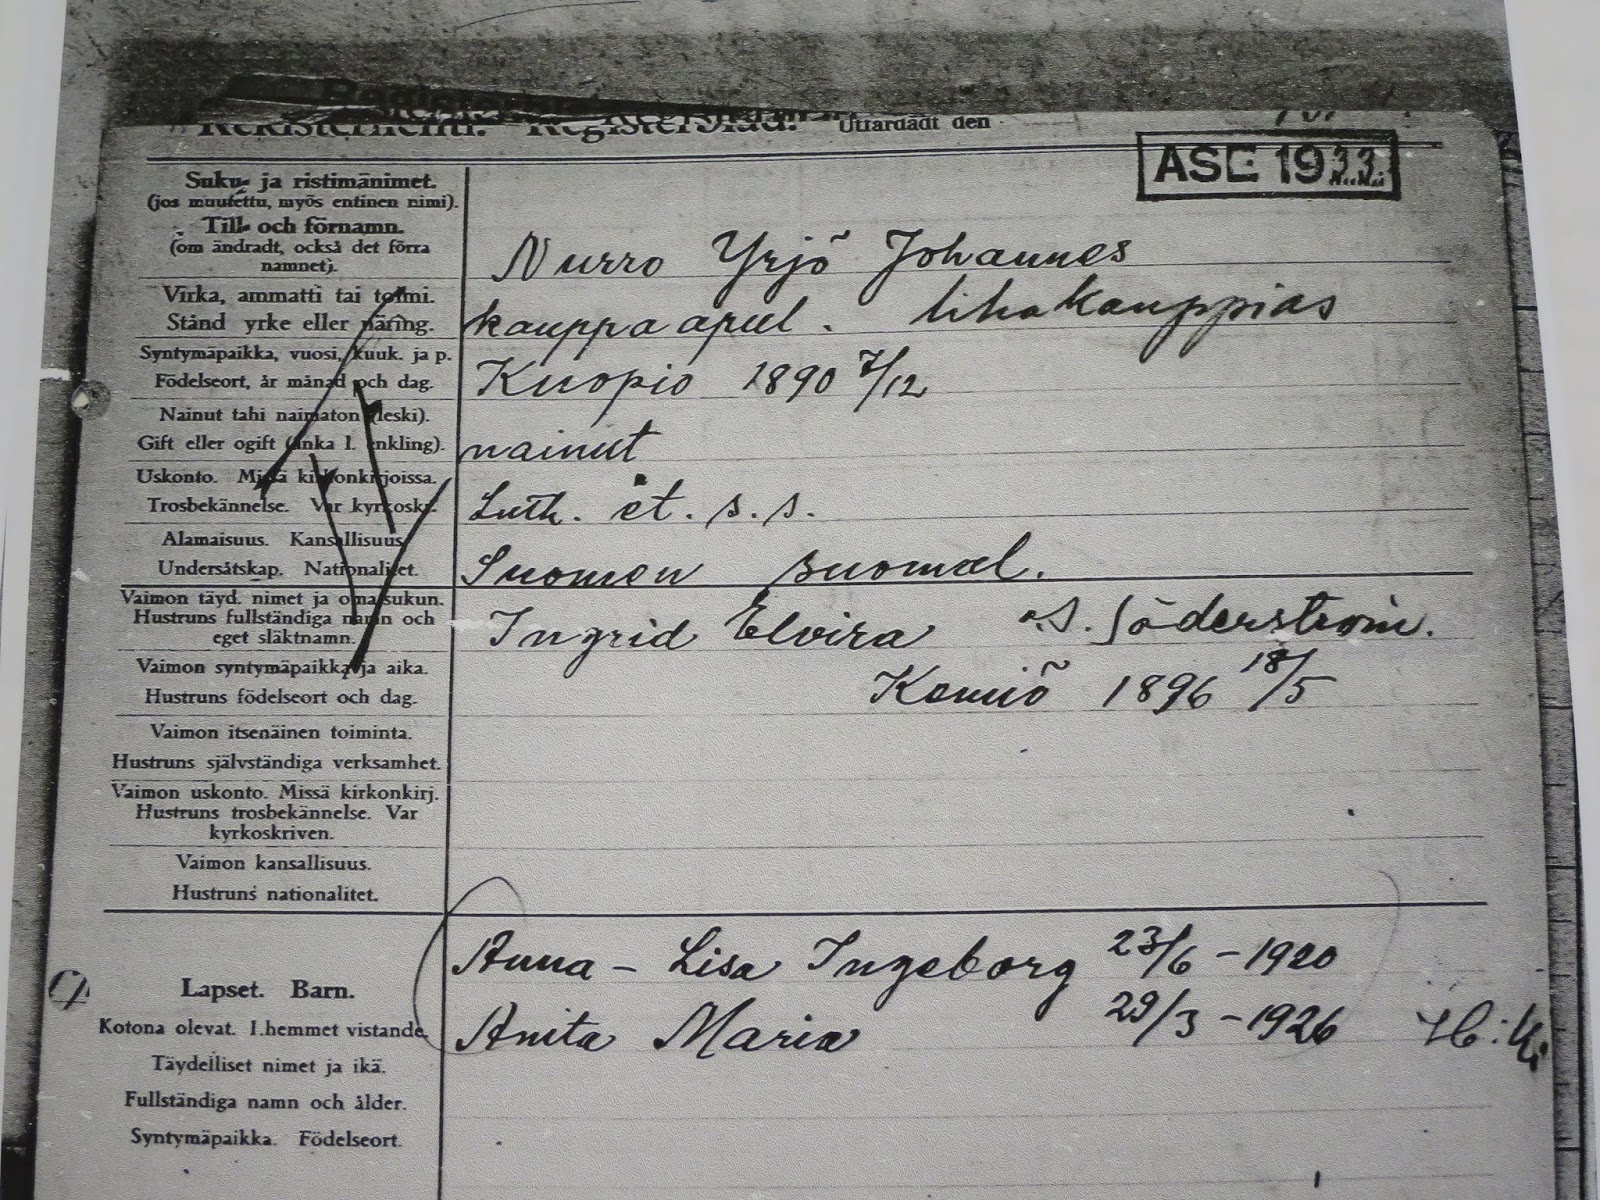 Rekisterilehti. Registerblad. Utfärdadt den
ASE 1933
Suku- ja ristimänimet.
(jos muutettu, myös entinen nimi).
Till- och förnamn.
(om ändradt, också det förra
namnet).
Nurro Yrjö Johannes
Virka, ammatti tai toimi.
Stånd yrke eller näring.
kauppa apul. lihakauppias
Syntymäpaikka, vuosi, kuuk. ja p.
Födelseort, år månad och dag.
Kuopio 1890 7/12
Nainut tahi naimaton (leski).
Gift eller ogift (änka l. enkling).
nainut
Uskonto. Missä kirkonkirjoissa.
Trosbekännelse. Var kyrkoskr.
Luth. et. s. s.
Alamaisuus. Kansallisuus
Undersåtskap. Nationalitet.
Suomen suomal.
Vaimon täyd. nimet ja oma sukun.
Hustruns fullständiga namn och
eget släktnamn.
Ingrid Elvira o.s. Söderström.
Vaimon syntymäpaikka ja aika.
Hustruns födelseort och dag.
Kemiö 1896 18/5
Vaimon itsenäinen toiminta.
Hustruns självständiga verksamhet.
Vaimon uskonto. Missä kirkonkirj.
Hustruns trosbekännelse. Var
kyrkoskriven.
Vaimon kansallisuus.
Hustruns nationalitet.
Anna-Lisa Ingeborg 23/6-1920
Lapset. Barn.
Kotona olevat. I hemmet vistande.
Anita Maria 29/3-1926 H:ki
Täydelliset nimet ja ikä.
Fullständiga namn och ålder.
Syntymäpaikka. Födelseort.